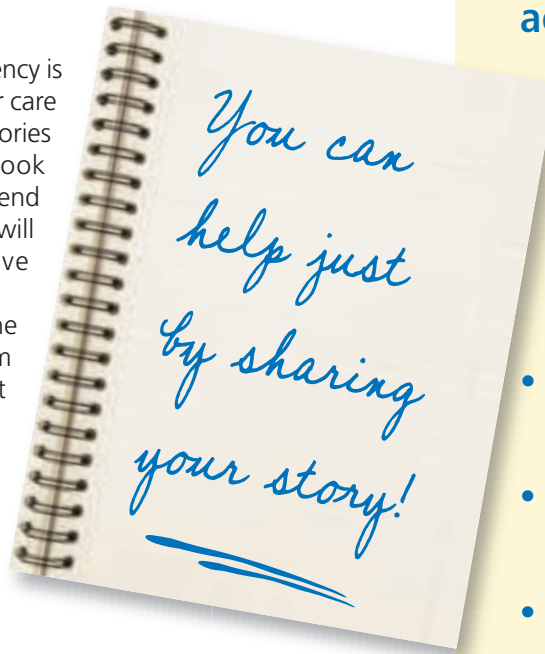 ency is
r care
ories
ook
end
will
ve
t
You can
help just
by sharing
your story!